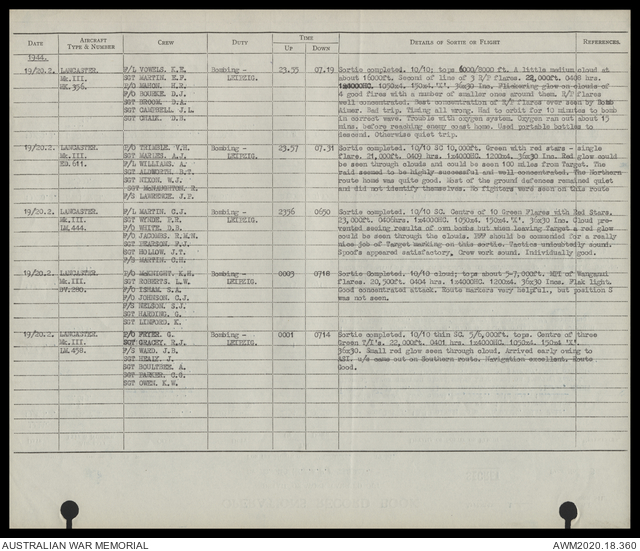 DATE AIRCRAFT TYPE & NUMBER CREW DUTY TIME UP DOWN DETAILS OF SORTIE OR FLIGHT REFERENCES.
1944.
19/20.2. LANCASTER F/L VOWELS. R.E. Bombing - 23.55 07.19 Sortie completed. 10/10; tops 6000/8000 ft. A little medium cloud at
Mk.III. SGT MARTIN. E.F. LEIPZIG. about 16000ft. Second of line of 3 R/P flares. 22,000ft. 0408 hrs.
F/O MAHON. H.R. 1x4000HC. 1050x4. 150x4.'X'. 36x30 Inc. Flickering glow on clouds of
P/O BOURKE. D.J. 4 good fires with a number of smaller ones around them. R/P flares
SGT BROOM. D.A. well concentrated. Best concentration of R/P flares ever seen by Bomb
SGT CAMPBELL. J.L. Aimer. Bad trip. Timing all wrong. Had to orbit for 10 minutes to bomb
SGT D.B. in correct wave. Trouble with oxygen system. Oxygen ran out about 15
mins. before reaching enemy coast home. Used portable bottles to
descend. Otherwise quiet trip.
19/20.2. LANCASTER P/O TRIMBLE. V.H. Bombing - 23.57 07.31 Sortie completed. 10/10 SC 10,000ft. Green with red stars - single
Mk.III. A.J. LEIPZIG. flare. 21,000ft. 0409 hrs. 1x4000HC. 1200x4. 36x30 Inc. Red glow could
ED.611. F/L WILLIAMS. A. be seen through clouds and could be seen 100 miles from Target. The
SGT ALDWORTH. B.T. raid seemed to be highly successful and well concentrated. The Northern
SGT NIXON. W.J. route home was quite good. Most of the ground defences remained quiet
SGT McNAUGHTON. R. and did not identify themselves. No fighters were seen on this route
F/S LAWRENCE. J.P.
19/20.2. LANCASTER F/L MARTIN. C.J. Bombing - 2356 0650 Sortie completed. 10/10 SC. Centre of 10 Green Flares with Red Stars.
Mk.III. SGT LEIPZIG. 23,000ft. 0406hrs. 1x4000HC. 1050x4. 150x4.'X'. 36x30 Inc. Cloud pre-
LM.444. P/O WHITE. D.B. vented seeing results of own bombs but when leaving Target a red glow
P/O JACOMBS. R.M.N. could be seen through the clouds. PFF should be commended for a really
SGT PEARSON. F.J. nice job of Target marking on this sortie. Tactics undoubtedly sound.
SGT HOLLOW. J.T. Spoofs appeared satisfactory. Crew work sound. Individually good.
F/S MARTIN. C.H.
19/20.2. LANCASTER P/O McKNIGHT. K.H. Bombing - 0003 0718 Sortie Completed. 10/10 cloud; tops about 5-7,000ft. MPI of Wanganui
Mk.III. SGT ROBERTS. L.W. LEIPZIG. flares. 20,500ft. 0404 hrs. 1x4000HC. 1200x4. 36x30 Incs. Flak light.
DV.280. F/O ISHAM. S.A. Good concentrated attack. Route markers very helpful., but position S
F/O JOHNSON. C.J. was not seen.
F/S NELSON. S.J.
SGT HARDING. G.
SGT LINFORD. K.
19/20.2. LANCASTER P/O FRYER. G. Bombing - 0001 0714 Sortie completed. 10/10 thin SC. 5/6,000ft. tops. Centre of three
Mk.III. SGT GRACEY. R.J. LEIPZIG. Green T/I's. 22,000ft. 0401 hrs. 1x4000HC. 1050x4. 150x4 'X'.
LM.458. F/S WARD. J.B. 36x30. Small red glow seen through cloud. Arrived early owing to
SGT HEALY. J. ASI. u/s came out on Southern route. Navigation excellent. Route
SGT BOULTBEE. A. Good.
SGT PARKER. C.G.
SGT OWEN. K.W.
AUSTRALIAN WAR MEMORIAL AWM2020.18.360